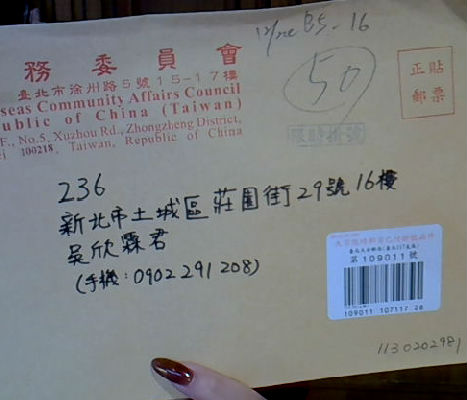 務委員會
臺北市徐州路5號15-17樓
seas Community Affairs Council
ublic of China (Taiwan)
F., No.5, Xuzhou Rd., Zhongzheng District,
ei 100218, Taiwan, Republic of China
B5-16
50
正貼
郵票
限時掛號
236
新北市土城區莊園街29號16樓
吳欣霖君
(手機:0902291208)
第109011號
109011 107117 26
1130202981